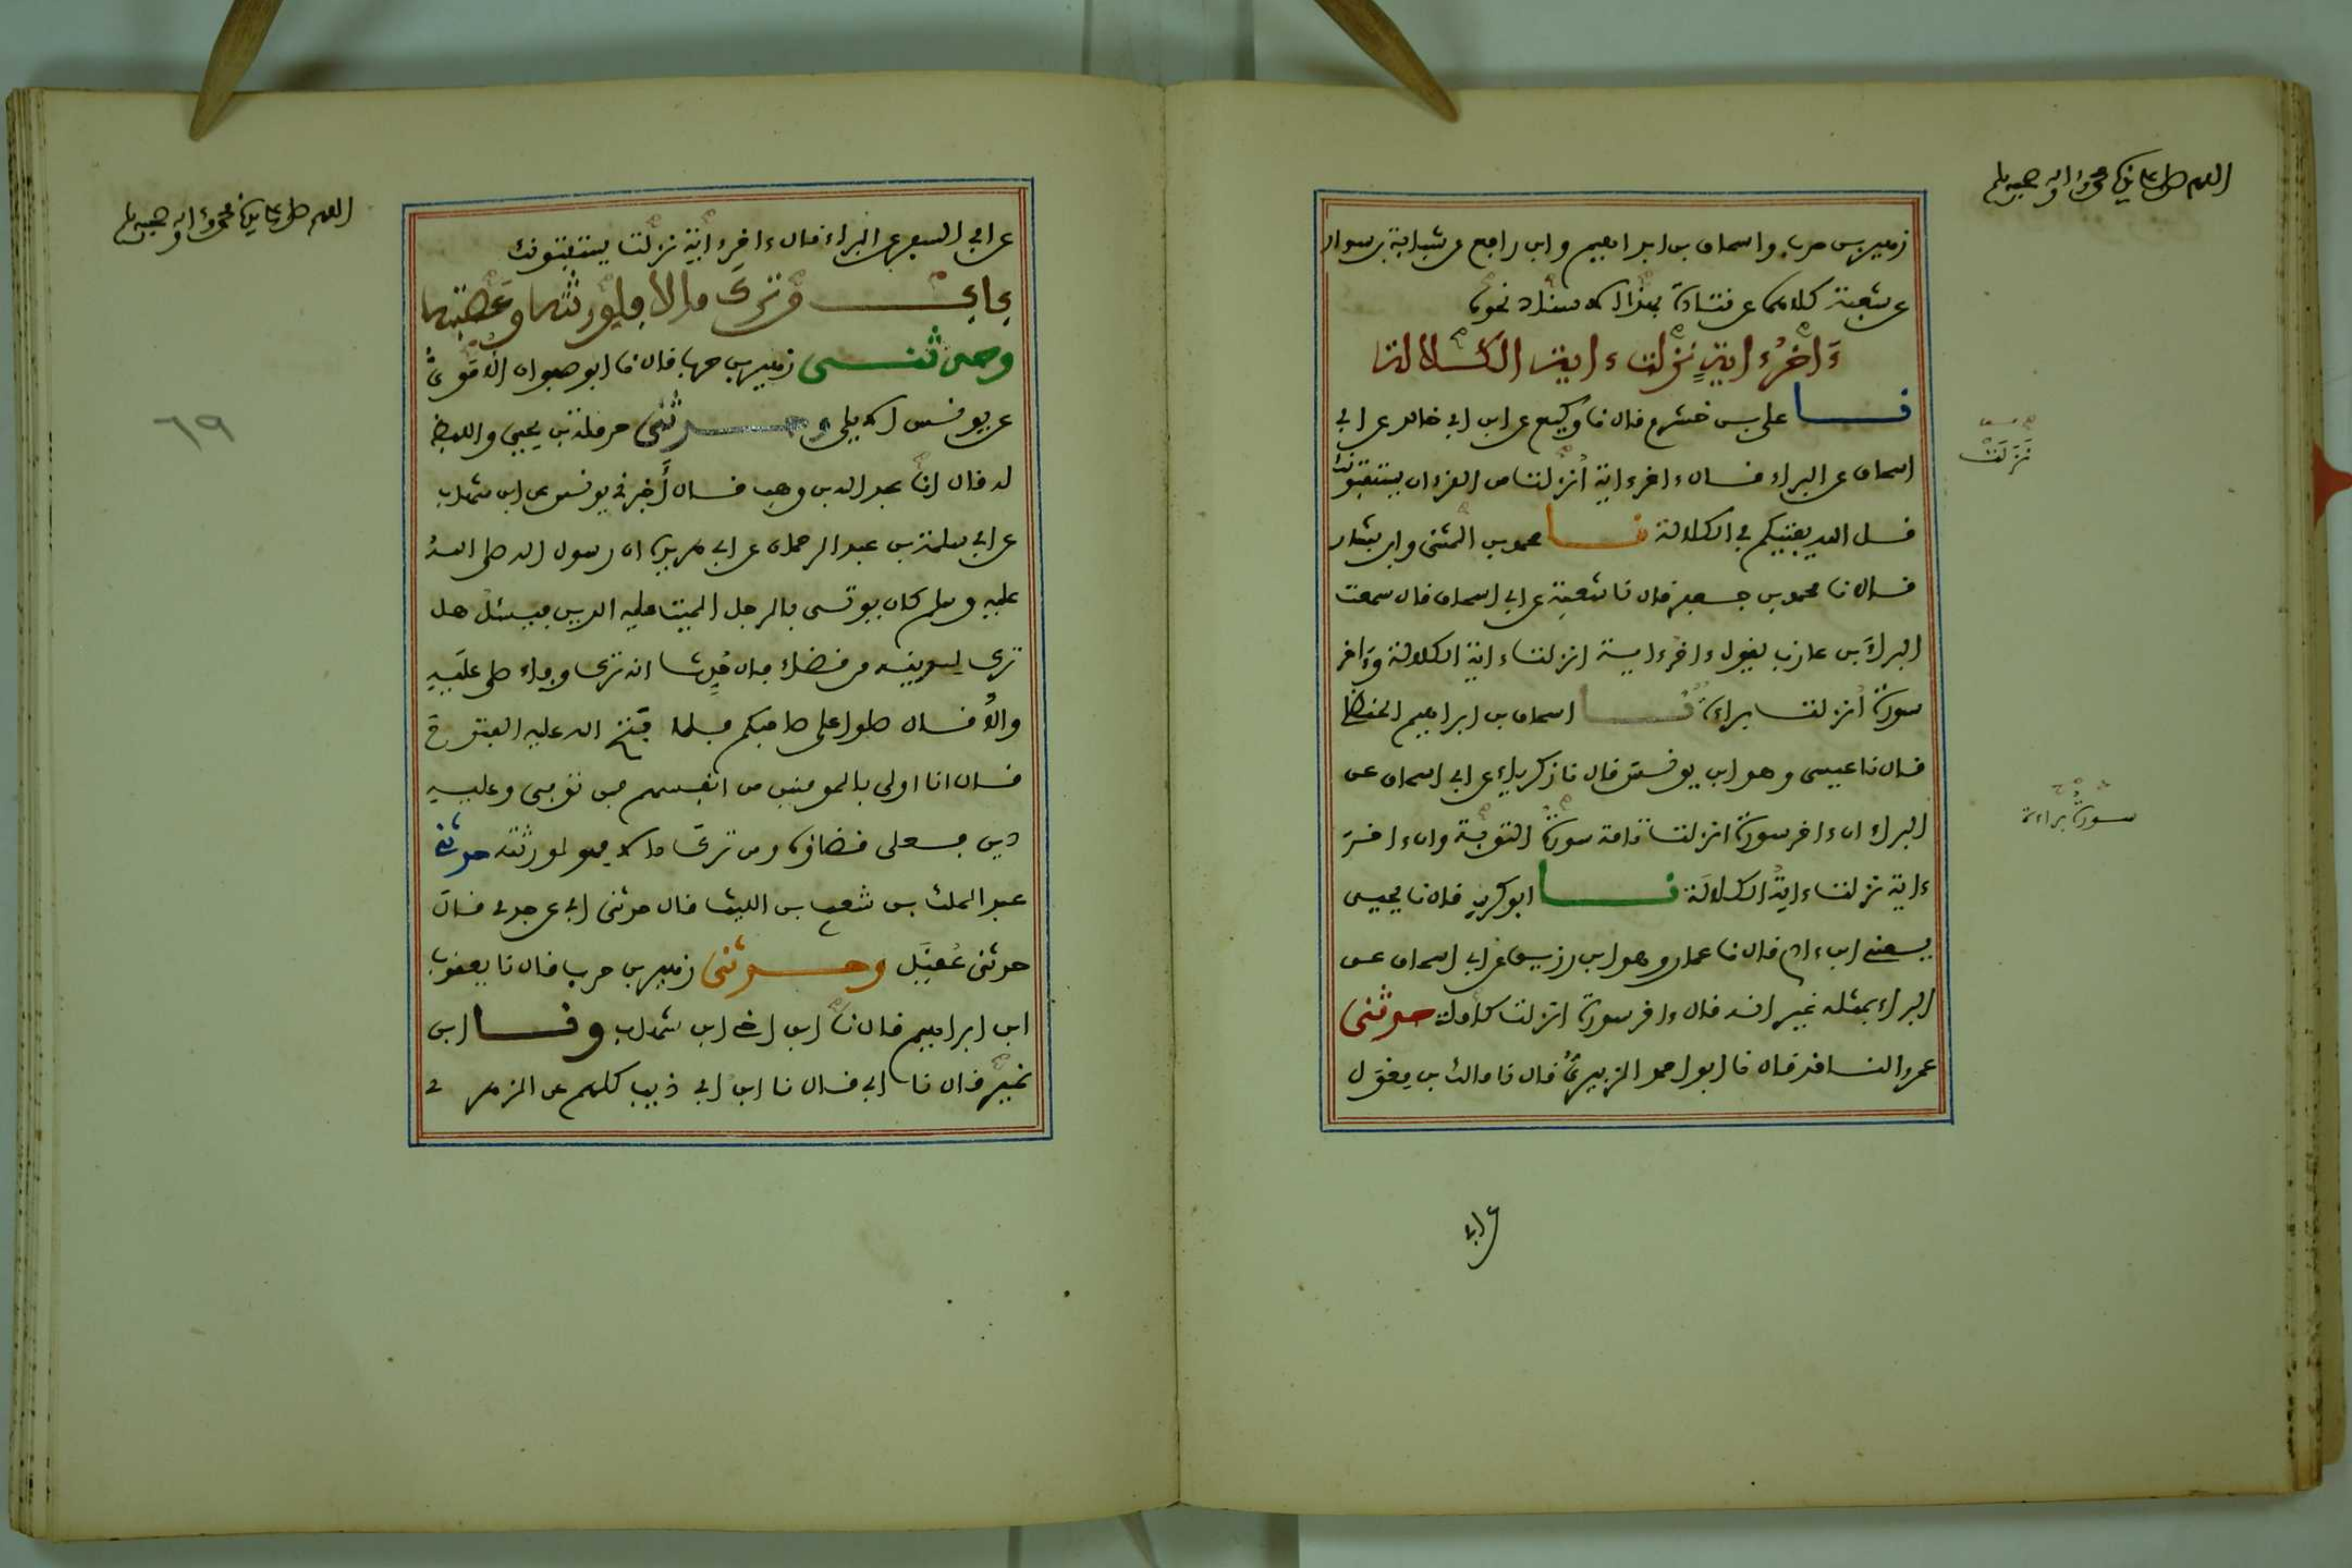 اللهم صل على نبينا محمد وآله وصحبه وسلم
زهير بن حرب واسحاق بن ابراهيم وابن رافع عن شبابة بن سوار
عن شعبة كلاهما عن قتادة بهذا الاسناد نحوه
ءاخر ءاية نزلت ءاية الكلالة
نا علي بن خشرم قال نا وكيع عن ابن ابي خالد عن ابي
اسحاق عن البراء قال ءاخر ءاية أنزلت من القرءان يستفتونك
قل الله يفتيكم في الكلالة نا محمد بن المثنى وابن بشار
قالا نا محمد بن جعفر قال نا شعبة عن ابي اسحاق قال سمعت
البراء بن عازب يقول ءاخر ءاية انزلت ءاية الكلالة وءاخر
سورة أنزلت براءة نا اسحاق بن ابراهيم الحنظلي
قال نا عيسى وهو ابن يونس قال نا زكرياء عن ابي اسحاق عن
البراء ان ءاخر سورة انزلت تامة سورة التوبة وان ءاخر
ءاية نزلت ءاية الكلالة نا ابو كريب قال نا يحيى
يعني ابن ءادم قال نا عمار وهو ابن رزيق عن ابي اسحاق عن
البراء بمثله غير انه قال ءاخر سورة انزلت كاملة حدثني
عمرو الناقد قال نا ابو احمد الزبيري قال نا مالك بن مغول
نزلت
سورة براءة
عن ابي
اللهم صل على نبينا محمد وآله وصحبه وسلم
عن ابي السفر عن البراء قال ءاخر ءاية نزلت يستفتونك
باب من ترك مالا فلورثته وعصبته
وحدثني زهير بن حرب قال نا ابو صفوان الأموي
عن يونس الايلي وحدثني حرملة بن يحيى واللفظ
له قال انا عبد الله بن وهب قال أخبرني يونس عن ابن شهاب
عن ابي سلمة بن عبد الرحمان عن ابي هريرة ان رسول الله صلى الله
عليه وسلم كان يوتى بالرجل الميت عليه الدين فيسئل هل
ترك لدينه من قضاء فان حدث انه ترك وفاء صلى عليه
والا قال صلوا على صاحبكم فلما فتح الله عليه الفتوح
قال انا اولى بالمومنين من انفسهم فمن توفي وعليه
دين فعلي قضاؤه ومن ترك مالا فهو لورثته حدثني
عبد الملك بن شعيب بن الليث قال حدثني ابي عن جدي قال
حدثني عقيل وحدثني زهير بن حرب قال نا يعقوب
ابن ابراهيم قال نا ابن اخي ابن شهاب ونا ابن
نمير قال نا ابي قال نا ابن ابي ذيب كلهم عن الزهري
٦٩